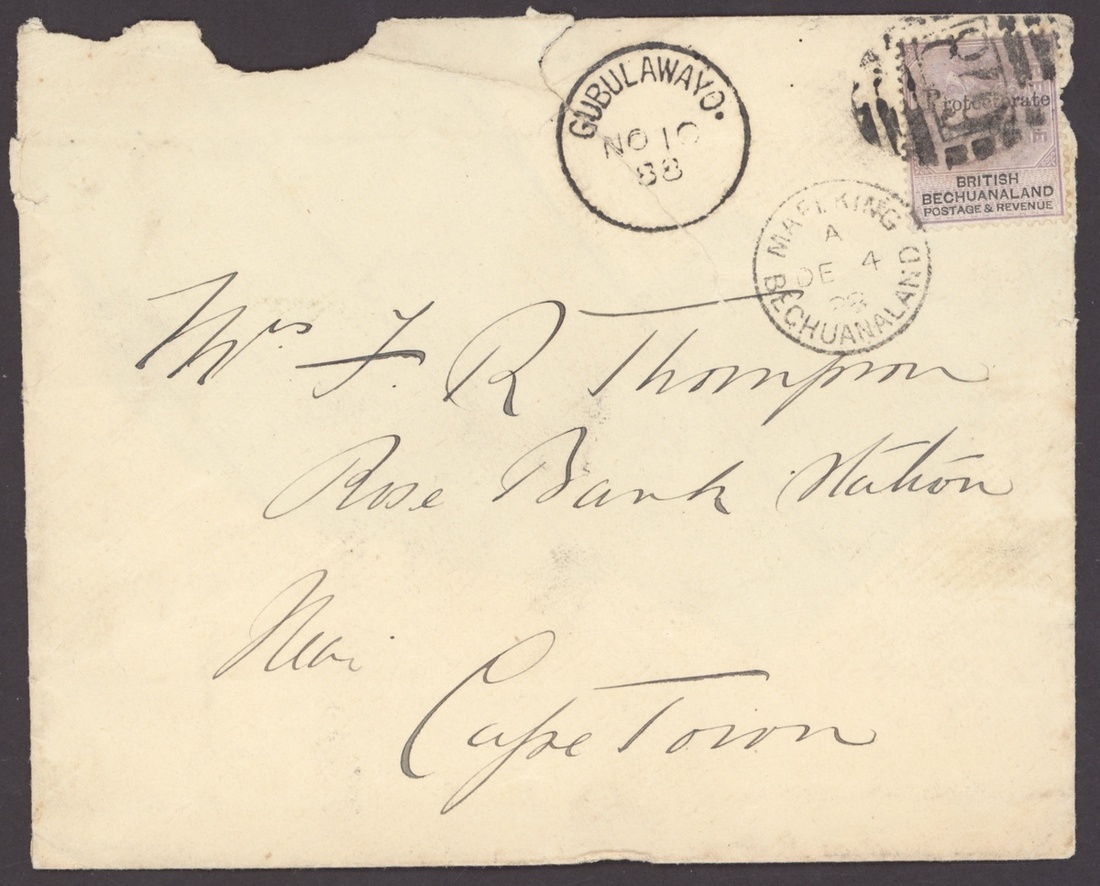 GUBULAWAYO.
NO 10
88
Protectorate
BRITISH
BECHUANALAND
POSTAGE & REVENUE
MAFEKING
A
DE 4
88
BECHUANALAND
Mrs F R Thompson
Rose Bank Station
Near
Cape Town